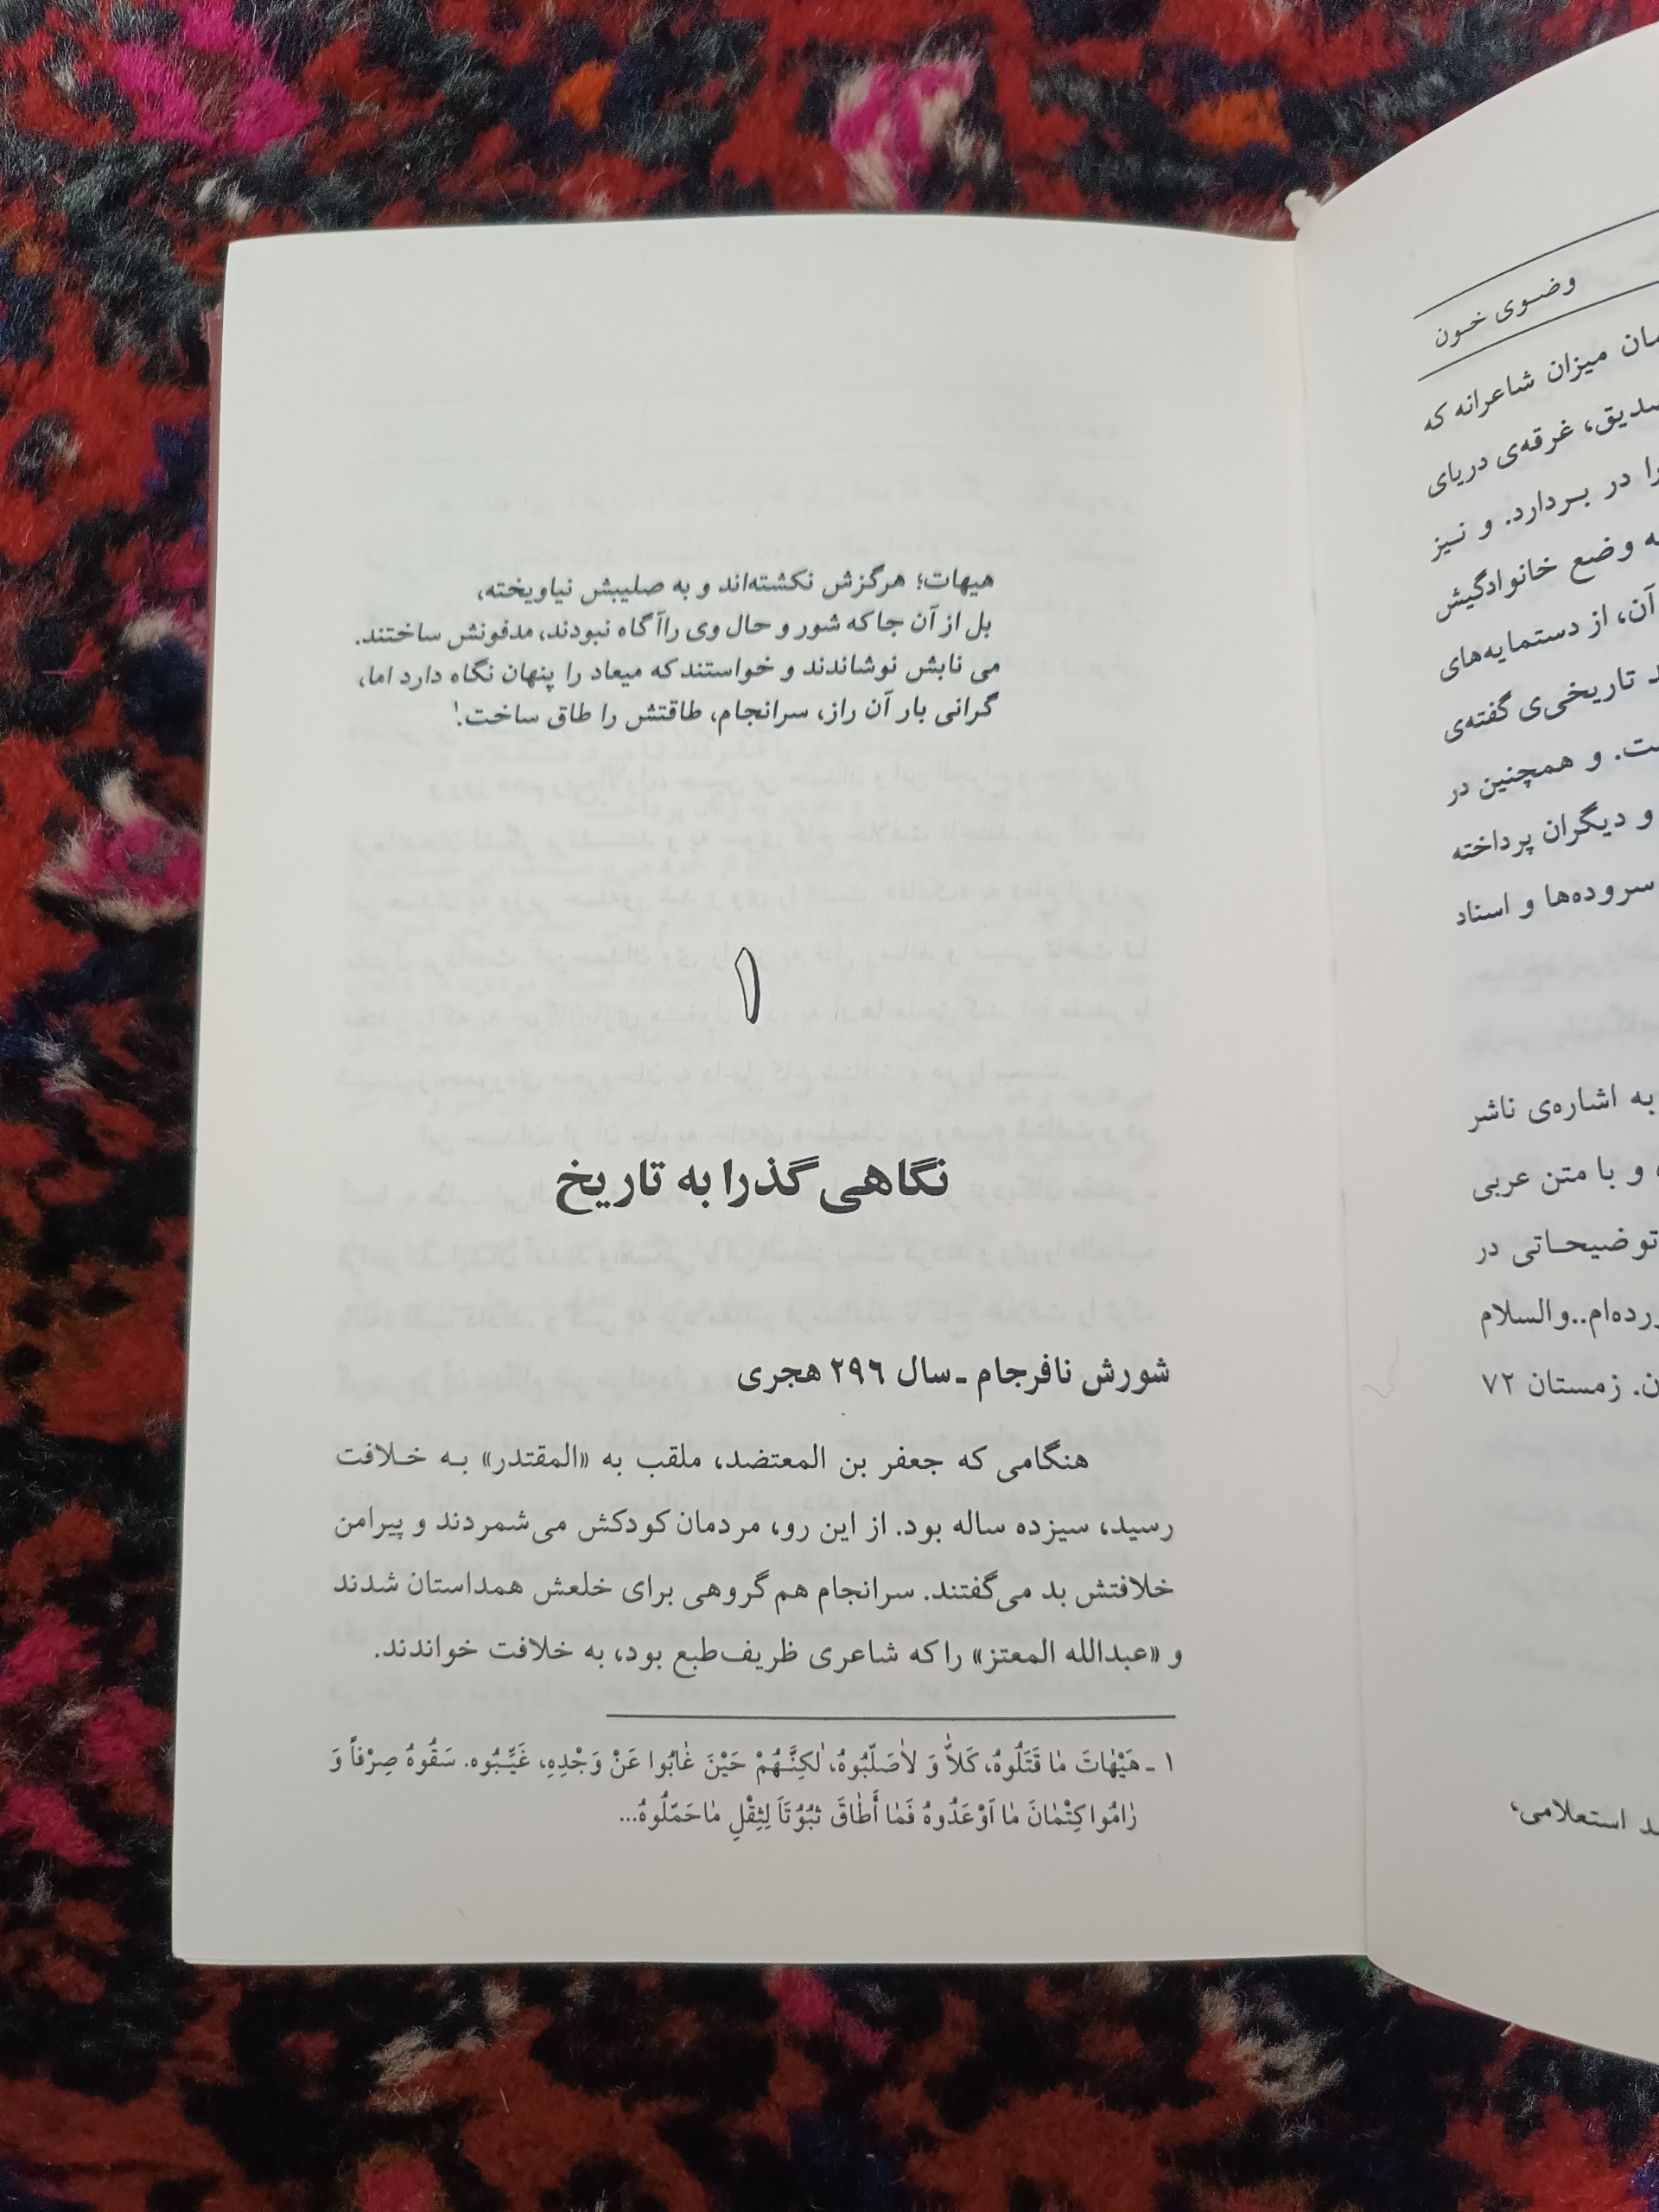 وضوی خون
میزان شاعرانه که
غرقه‌ی دریای
در بردارد. و نیز
وضع خانوادگیش
آن، از دستمایه‌های
تاریخی‌ی گفته‌ی
و همچنین در
و دیگران پرداخته
سروده‌ها و اسناد
به اشاره‌ی ناشر
و با متن عربی
توضیحاتی در
..والسلام
زمستان ۷۲
استعلامی،
هیهات؛ هرگزش نکشته‌اند و به صلیبش نیاویخته،
بل از آن جا که شور و حال وی را آگاه نبودند، مدفونش ساختند.
می نابش نوشاندند و خواستند که میعاد را پنهان نگاه دارد اما،
گرانی بار آن راز، سرانجام، طاقتش را طاق ساخت.¹
۱
نگاهی گذرا به تاریخ
شورش نافرجام ـ سال ۲۹۶ هجری
هنگامی که جعفر بن المعتضد، ملقب به «المقتدر» به خلافت
رسید، سیزده ساله بود. از این رو، مردمان کودکش می‌شمردند و پیرامن
خلافتش بد می‌گفتند. سرانجام هم گروهی برای خلعش همداستان شدند
و «عبدالله المعتز» را که شاعری ظریف‌طبع بود، به خلافت خواندند.
۱ ـ هَیْهٰاتَ مٰا قَتَلُوهُ، کَلاّٰ وَ لاٰصَلَّبُوهُ، لٰکِنَّهُمْ حَیْنَ غٰابُوا عَنْ وَجْدِهِ، غَیَّبُوه. سَقُوهُ صِرْفاً وَ
رٰامُوا کِتْمٰانَ مٰا اَوْعَدُوهُ فَمٰا أَطٰاقَ ثبُوُتَاً لِثِقْلِ مٰاحَمَّلُوهُ...